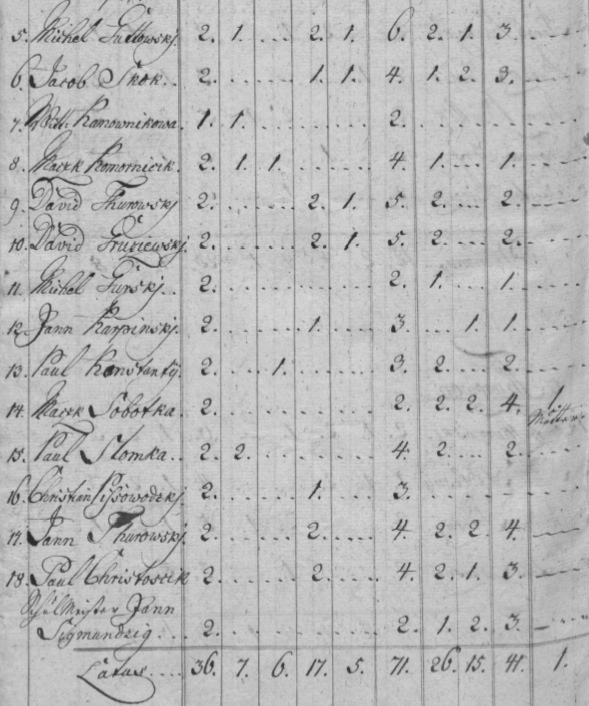 5. Michel Guttowskj. 2. 1. . . . . 2. 1. 6. 2. 1. 3. . . . .
6. Jacob Skok. . 2. . . . . . . 1. 1. 4. 1. 2. 3. . . . .
7. Witt: Komownikowa. 1. 1. . . . . . . . . . 2. . . . . . . . . .
8. Maczk Komornicik. 2. 1. 1. . . . . . . 4. 1. . . . 1. . . . .
9. David Thurowskj 2. . . . . . . 2. 1. 5. 2. . . . 2. . . . .
10. David Grusewskj. 2. . . . . . . 2. 1. 5. 2. . . . 2. . . . .
11. Michel Gurskj. . 2. . . . . . . . . . . 2. 1. . . . 1. . . . .
12. Jann Karpinskj. 2. . . . . . . 1. . . . 3. . . . 1. 1. . . . .
13. Paul Konstanty. 2. . . . 1. . . . . . . 3. 2. . . . 2. . . . .
14. Maczk Sobotka. 2. . . . . . . . . . . 2. 2. 2. 4. 1.
15. Paul Slomka. . 2. 2. . . . . . . . . 4. 2. . . . 2. . . . .
16. Christian 2. . . . . . . 1. . . . 3. . . . . . . . . .
17. Jann Thurowskj. 2. . . . . . . 2. . . . 4. 2. 2. 4. . . . .
18. Paul Christoscik 2. . . . . . . 2. . . . 4. 2. 1. 3. . . . .
Schul Meister Jann
Sigmundzig. . . 2. . . . . . . . . . . 2. 1. 2. 3. . . . .
Latus. . . . 36. 7. 6. 17. 5. 71. 26. 15. 41. 1.